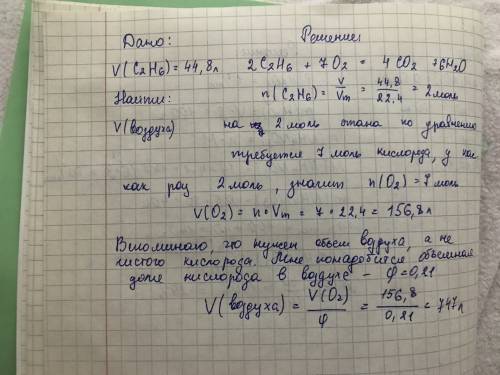 Дано: Решение:
V(C2H6) = 44,8л 2C2H6 + 7O2 = 4CO2 + 6H2O
Найти: n(C2H6) = V/Vm = 44,8/22,4 = 2 моль
V(воздуха) на 2 моль этана по уравнению
требуется 7 моль кислорода, у нас
как раз 2 моль, значит n(O2) = 7 моль
V(O2) = n · Vm = 7 · 22,4 = 156,8л
Вспоминаю, что нужен объем воздуха, а не
чистого кислорода. Мне понадобится объемная
доля кислорода в воздухе – φ = 0,21
V(воздуха) = V(O2)/φ = 156,8/0,21 = 747л